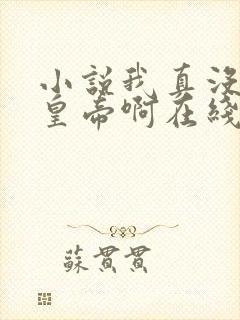 小説我真没
皇帝啊在綫
蘇貫貫